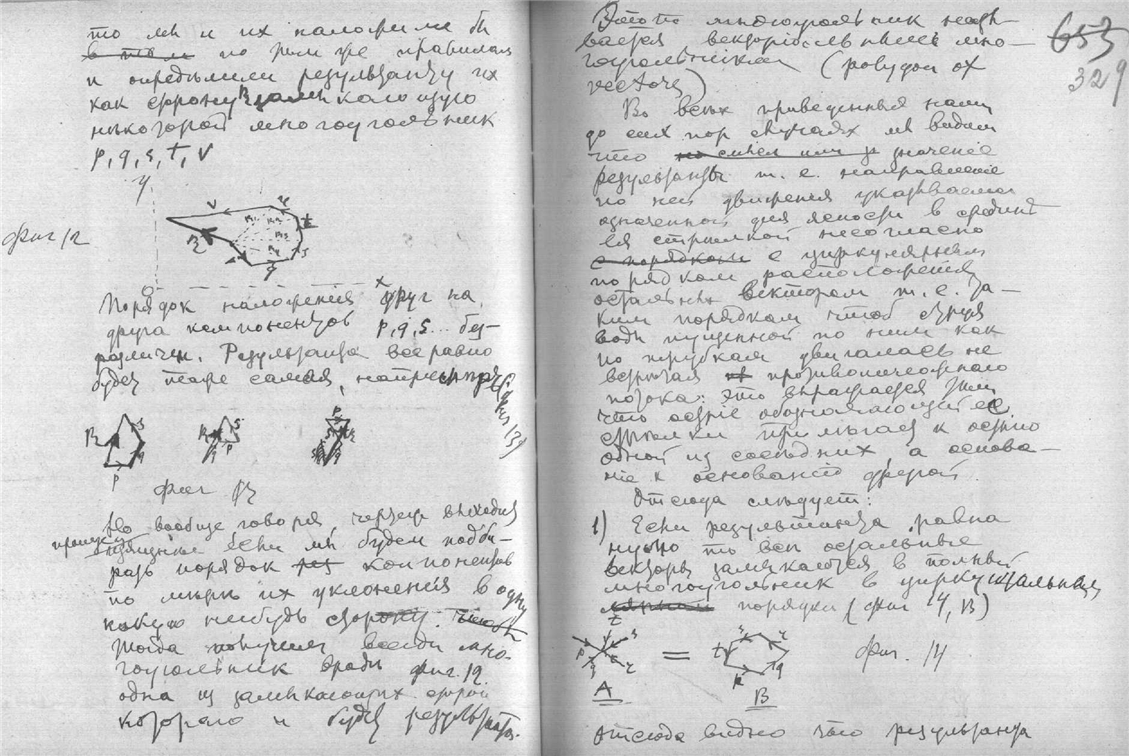 то мы и их наложили бы
в том по тем же правилам
и определили результанту их
как сторону замыкающую
некоторой многоугольник
p, q, s, t, v
y
v
R
q
s
t
Фиг 12
Порядок наложения друг на
друга компонентов p, q, s... без-
различен. Результанта все равно
будет та же самая, например
R
s
q
p
R
s
p
q
p
Фиг 13
Но вообще говоря чертеж выходит
если мы будем подби-
рать порядок компонентов
по мере их уклонения в одну
какую нибудь сторону.
Тогда получим всегда мно-
гоугольник вроде фиг. 12.
одна из замыкающих сторон
которого и будет результанта.
653
329
Этот многоугольник назы-
вается векториальным мно-
гоугольником (
Во всех приведенных нами
до сих пор случаях мы видим
что значение
результанты т. е. направление
по ней движения указываемое
означенной для ясности в средине
ея стрелкой несогласно
с порядком с циркулярным
порядком расположения
остальных векторов т. е. та-
ким порядком чтоб струя
воды пущенной по ним как
по трубкам двигалась не
встречая противоположного
потока: Это выражается тем
что острие обозначающей ее
стрелки примыкает к острию
одной из соседних, а основа-
ние к основанию другой.
Отсюда следует:
1) Если результанта равна
нулю то все остальные
векторы замыкаются в полный
многоугольник в
порядке (фиг 14, B)
t
s
p
q
r
=
t
s
r
q
A
B
Фиг. 14
Отсюда видно что результанта